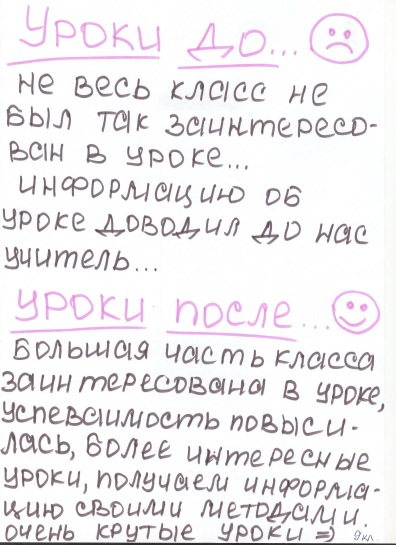 УРОКИ ДО...
НЕ ВЕСЬ КЛАСС НЕ
БЫЛ ТАК ЗАИНТЕРЕСО-
ВАН В УРОКЕ...
ИНФОРМАЦИЮ ОБ
УРОКЕ ДОВОДИЛ ДО НАС
УЧИТЕЛЬ...
УРОКИ ПОСЛЕ...
БОЛЬШАЯ ЧАСТЬ КЛАССА
ЗАИНТЕРЕСОВАНА В УРОКЕ,
УСПЕВАИМОСТЬ ПОВЫСИ-
ЛАСЬ, БОЛЕЕ ИНТЕРЕСНЫЕ
УРОКИ, ПОЛУЧАЕМ ИНФОРМА-
ЦИЮ СВОИМИ МЕТОДАМИ.
ОЧЕНЬ КРУТЫЕ УРОКИ =) 9 кл.